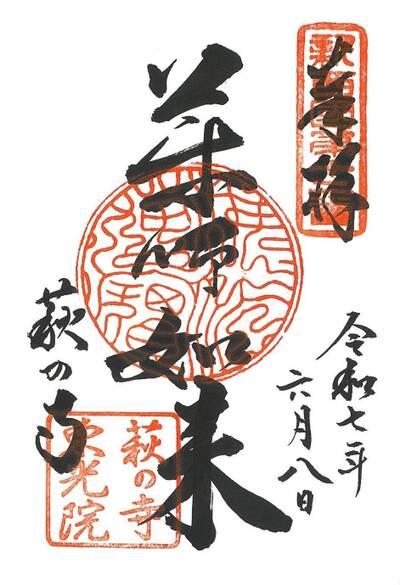 奉拝
令和七年
六月八日
薬師如来
萩の寺
萩の寺
東光院